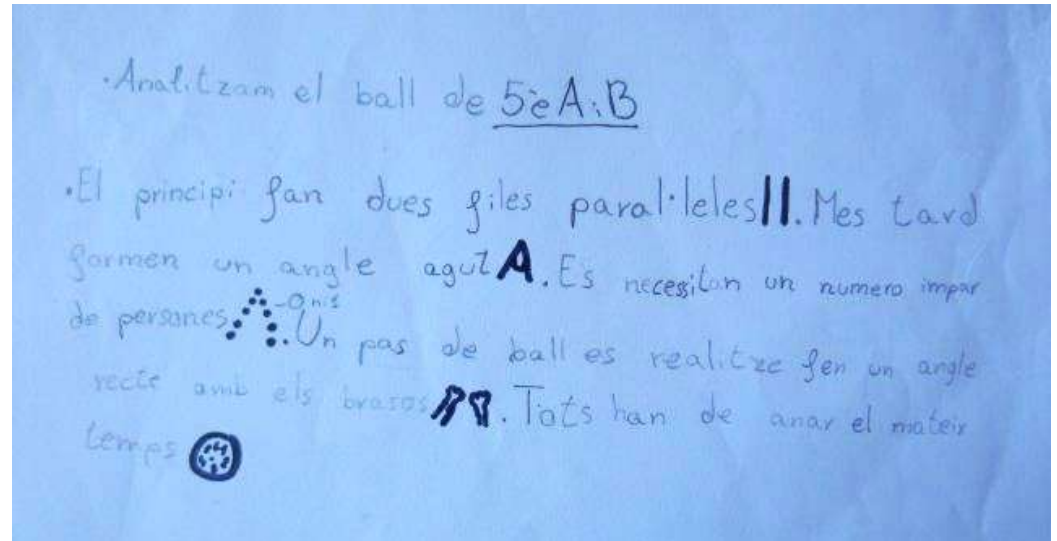 ·Analitzam el ball de 5èA i B
·El principi fan dues files paral·leles. Mes tard
formen un angle agut. Es necesitan un numero impar
de persones. Un pas de ball es realitze fen un angle
recte amb els brasos. Tots han de anar el mateix
temps